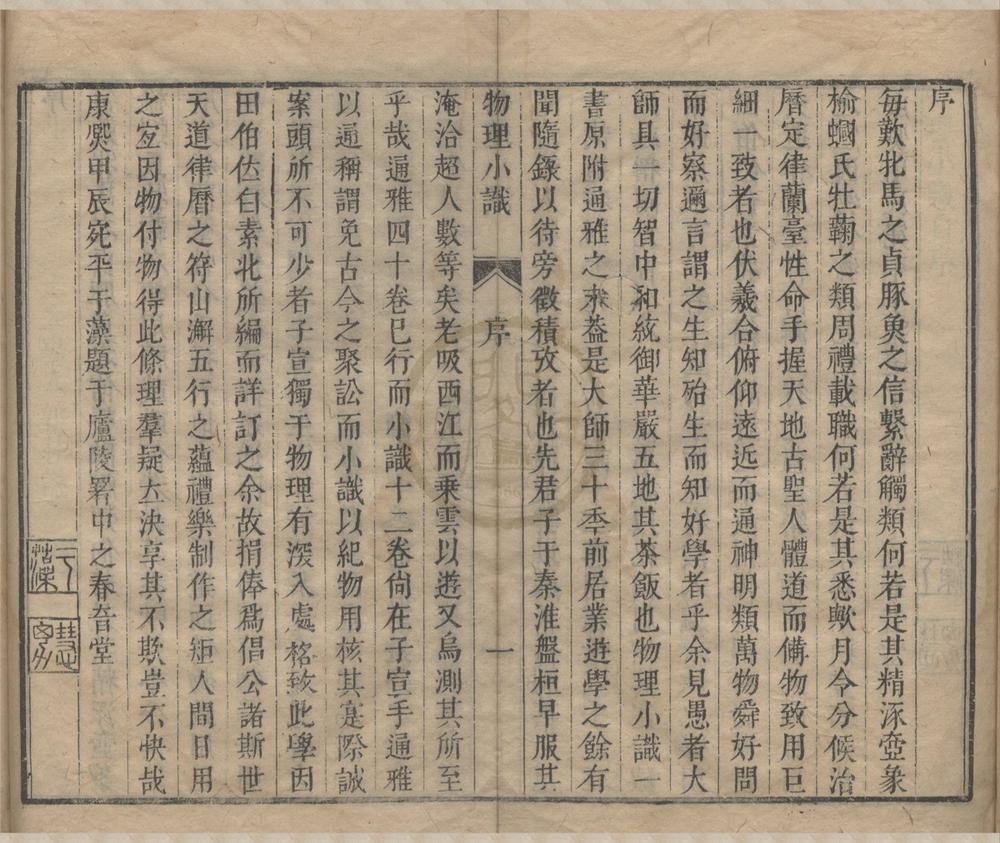 序
每歎牝馬之貞豚魚之信繫辭觸類何若是其精涿壺象
榆蟈氏牡蘜之類周禮載職何若是其悉歟月令分候治
曆定律蘭臺性命手握天地古聖人體道而備物致用巨
細一致者也伏羲合俯仰遠近而通神明類萬物舜好問
而好察邇言謂之生知殆生而知好學者乎余見愚者大
師具一切智中和統御華嚴五地其茶飯也物理小識一
書原附通雅之末葢是大師三十年前居業遊學之餘有
聞隨錄以待旁徵積攷者也先君子于秦淮盤桓早服其
物理小識 序 一
淹洽超人數等矣老吸西江而乘雲以遊又烏測其所至
乎哉通雅四十卷已行而小識十二卷尙在子宣手通雅
以通稱謂免古今之聚訟而小識以紀物用核其寔際誠
案頭所不可少者子宣獨于物理有深入處格致此學因
田伯佉白素北所編而詳訂之余故捐俸爲倡公諸斯世
天道律曆之符山澥五行之蘊禮樂制作之矩人間日用
之宐因物付物得此條理羣疑立決享其不欺豈不快哉
康熙甲辰宛平于藻題于廬陵署中之春音堂